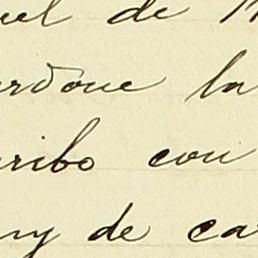 uel de M
erdone la
cribo con
ny de ca